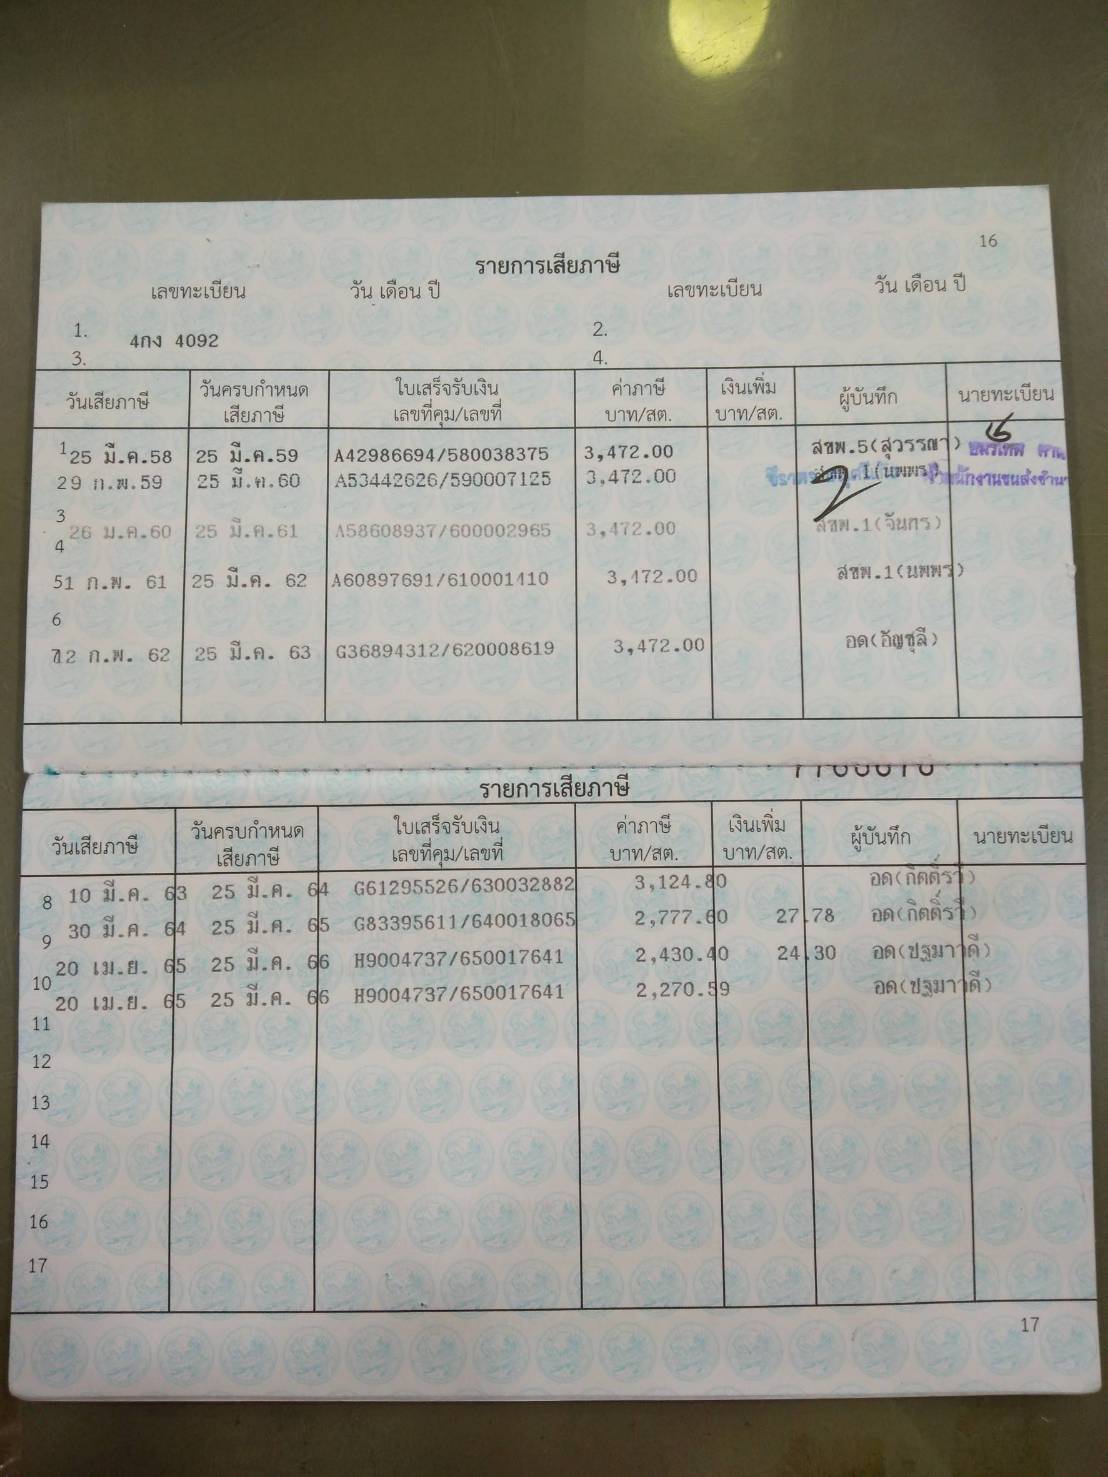 16
รายการเสียภาษี
เลขทะเบียน วัน เดือน ปี เลขทะเบียน วัน เดือน ปี
1. 4กง 4092 2.
3. 4.
วันเสียภาษี วันครบกำหนดเสียภาษี ใบเสร็จรับเงิน เลขที่คุม/เลขที่ ค่าภาษี บาท/สต. เงินเพิ่ม บาท/สต. ผู้บันทึก นายทะเบียน
1 25 มี.ค.58 25 มี.ค.59 A42986694/580038375 3,472.00 สขพ.5(สุวรรณา)
29 ก.พ.59 25 มี.ค.60 A53442626/590007125 3,472.00 1(นพพร)
3 26 ม.ค.60 25 มี.ค.61 A58608937/600002965 3,472.00 สขพ.1(จันทร)
4
5 1 ก.พ. 61 25 มี.ค. 62 A60897691/610001410 3,472.00 สขพ.1(นพพร)
6
7 12 ก.พ. 62 25 มี.ค. 63 G36894312/620008619 3,472.00 อด(อัญชุลี)
รายการเสียภาษี
วันเสียภาษี วันครบกำหนดเสียภาษี ใบเสร็จรับเงิน เลขที่คุม/เลขที่ ค่าภาษี บาท/สต. เงินเพิ่ม บาท/สต. ผู้บันทึก นายทะเบียน
8 10 มี.ค. 63 25 มี.ค. 64 G61295526/630032882 3,124.80 อด(กิตติ์รวี)
9 30 มี.ค. 64 25 มี.ค. 65 G83395611/640018065 2,777.60 27.78 อด(กิตติ์รวี)
10 20 เม.ย. 65 25 มี.ค. 66 H9004737/650017641 2,430.40 24.30 อด(ปฐมาวดี)
20 เม.ย. 65 25 มี.ค. 66 H9004737/650017641 2,270.59 อด(ปฐมาวดี)
11
12
13
14
15
16
17
17